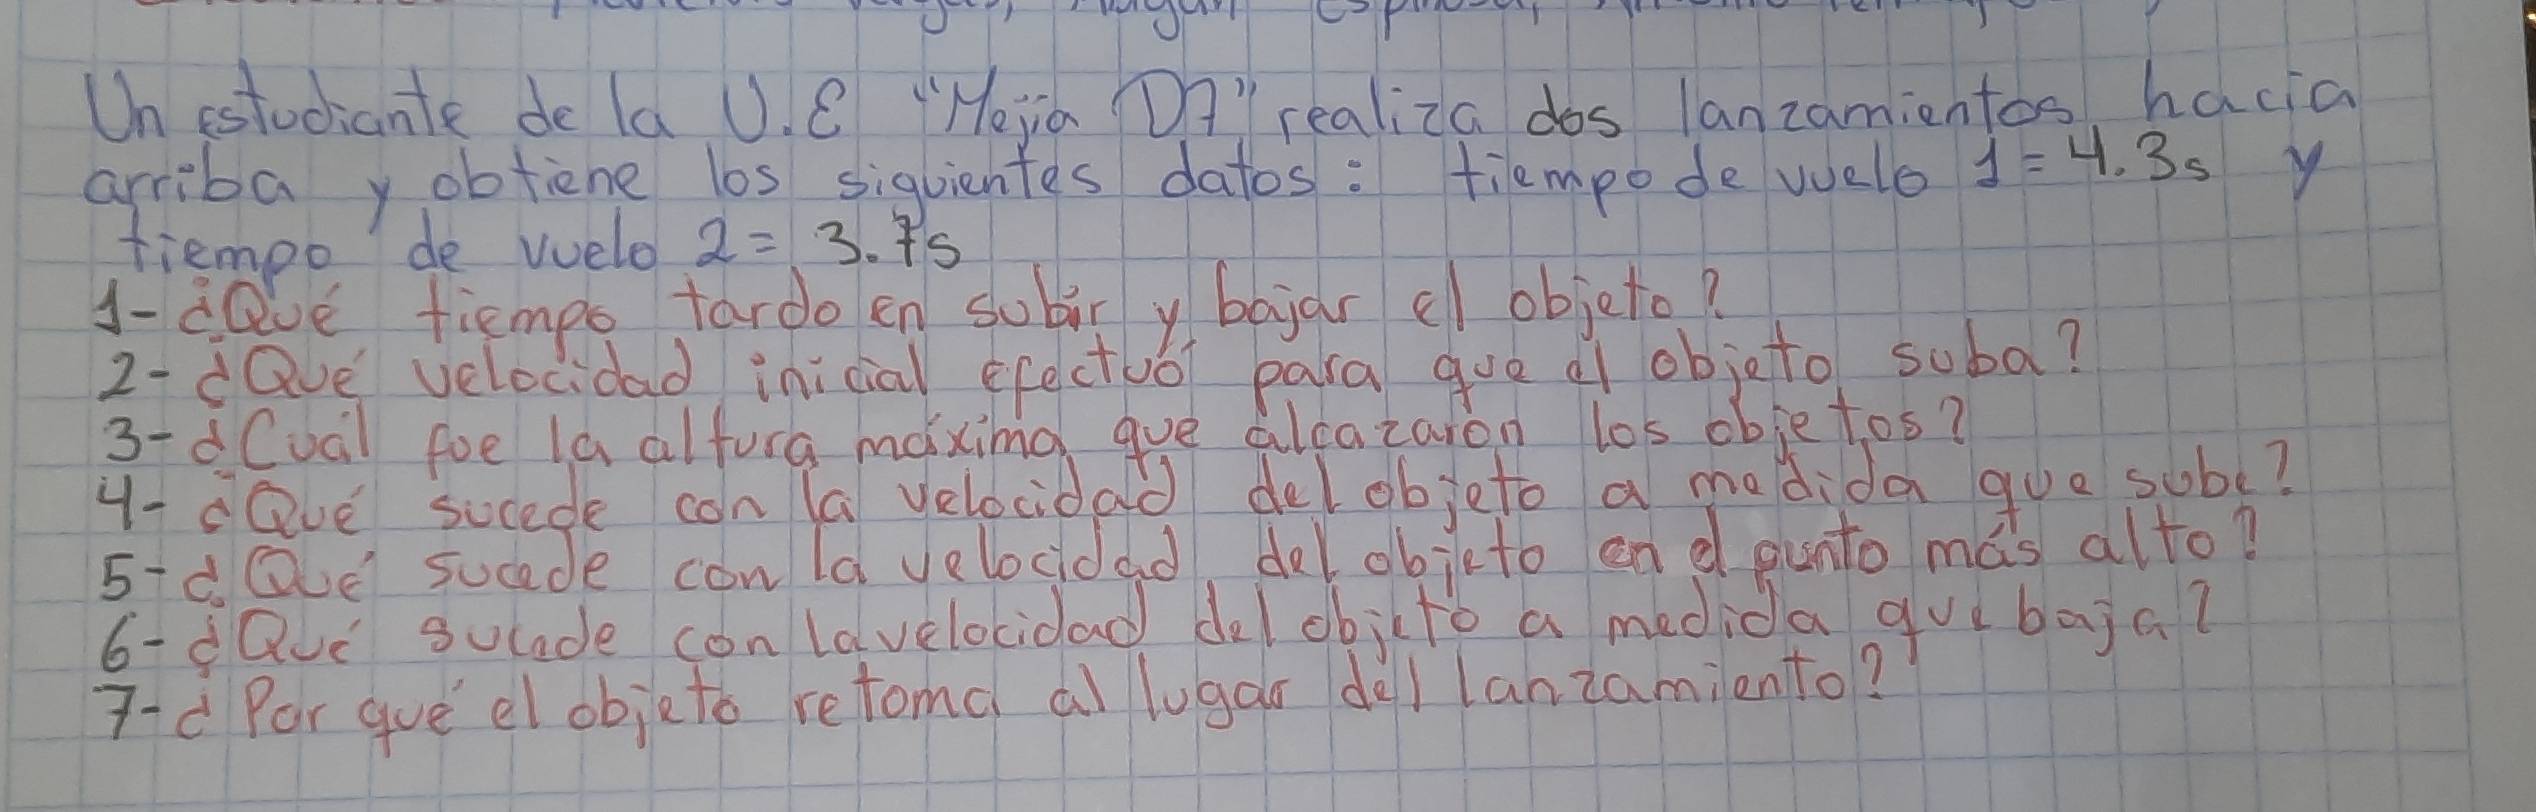 Un estudiante de la U.E "Mejia D7" realiza dos lanzamientos hacia
arriba y obtiene los siguientes datos: tiempo de vuelo 1=4.3s y
tiempo de vuelo 2= 3.7s
1- ¿Qué tiempo tardo en subir y bajar el objeto?
2- ¿Qué velocidad inicial efectuó para que el objeto suba?
3- ¿Cuál fue la altura máxima que alcazaron los objetos?
4- ¿Qué sucede con la velocidad del objeto a medida que sube?
5- ¿Qué sucede con la velocidad del objeto en el punto más alto?
6- ¿Qué sucede con la velocidad del objeto a medida que baja?
7- ¿Por qué el objeto retoma al lugar del lanzamiento?